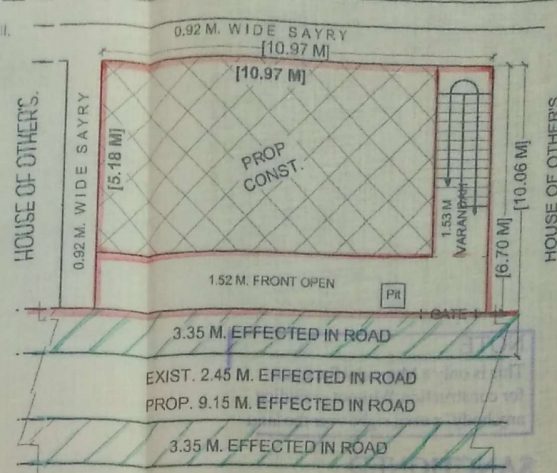 0.92 M. WIDE SAYRY
[10.97 M]
[10.97 M]
HOUSE OF OTHER'S.
0.92 M. WIDE SAYRY
[5.18 M]
PROP
CONST.
1.53 M
VARANDAH
[6.70 M]
[10.06 M]
HOUSE OF OTHER'S
1.52 M. FRONT OPEN
Pit
GATE
3.35 M. EFFECTED IN ROAD
EXIST. 2.45 M. EFFECTED IN ROAD
PROP. 9.15 M. EFFECTED IN ROAD
3.35 M. EFFECTED IN ROAD